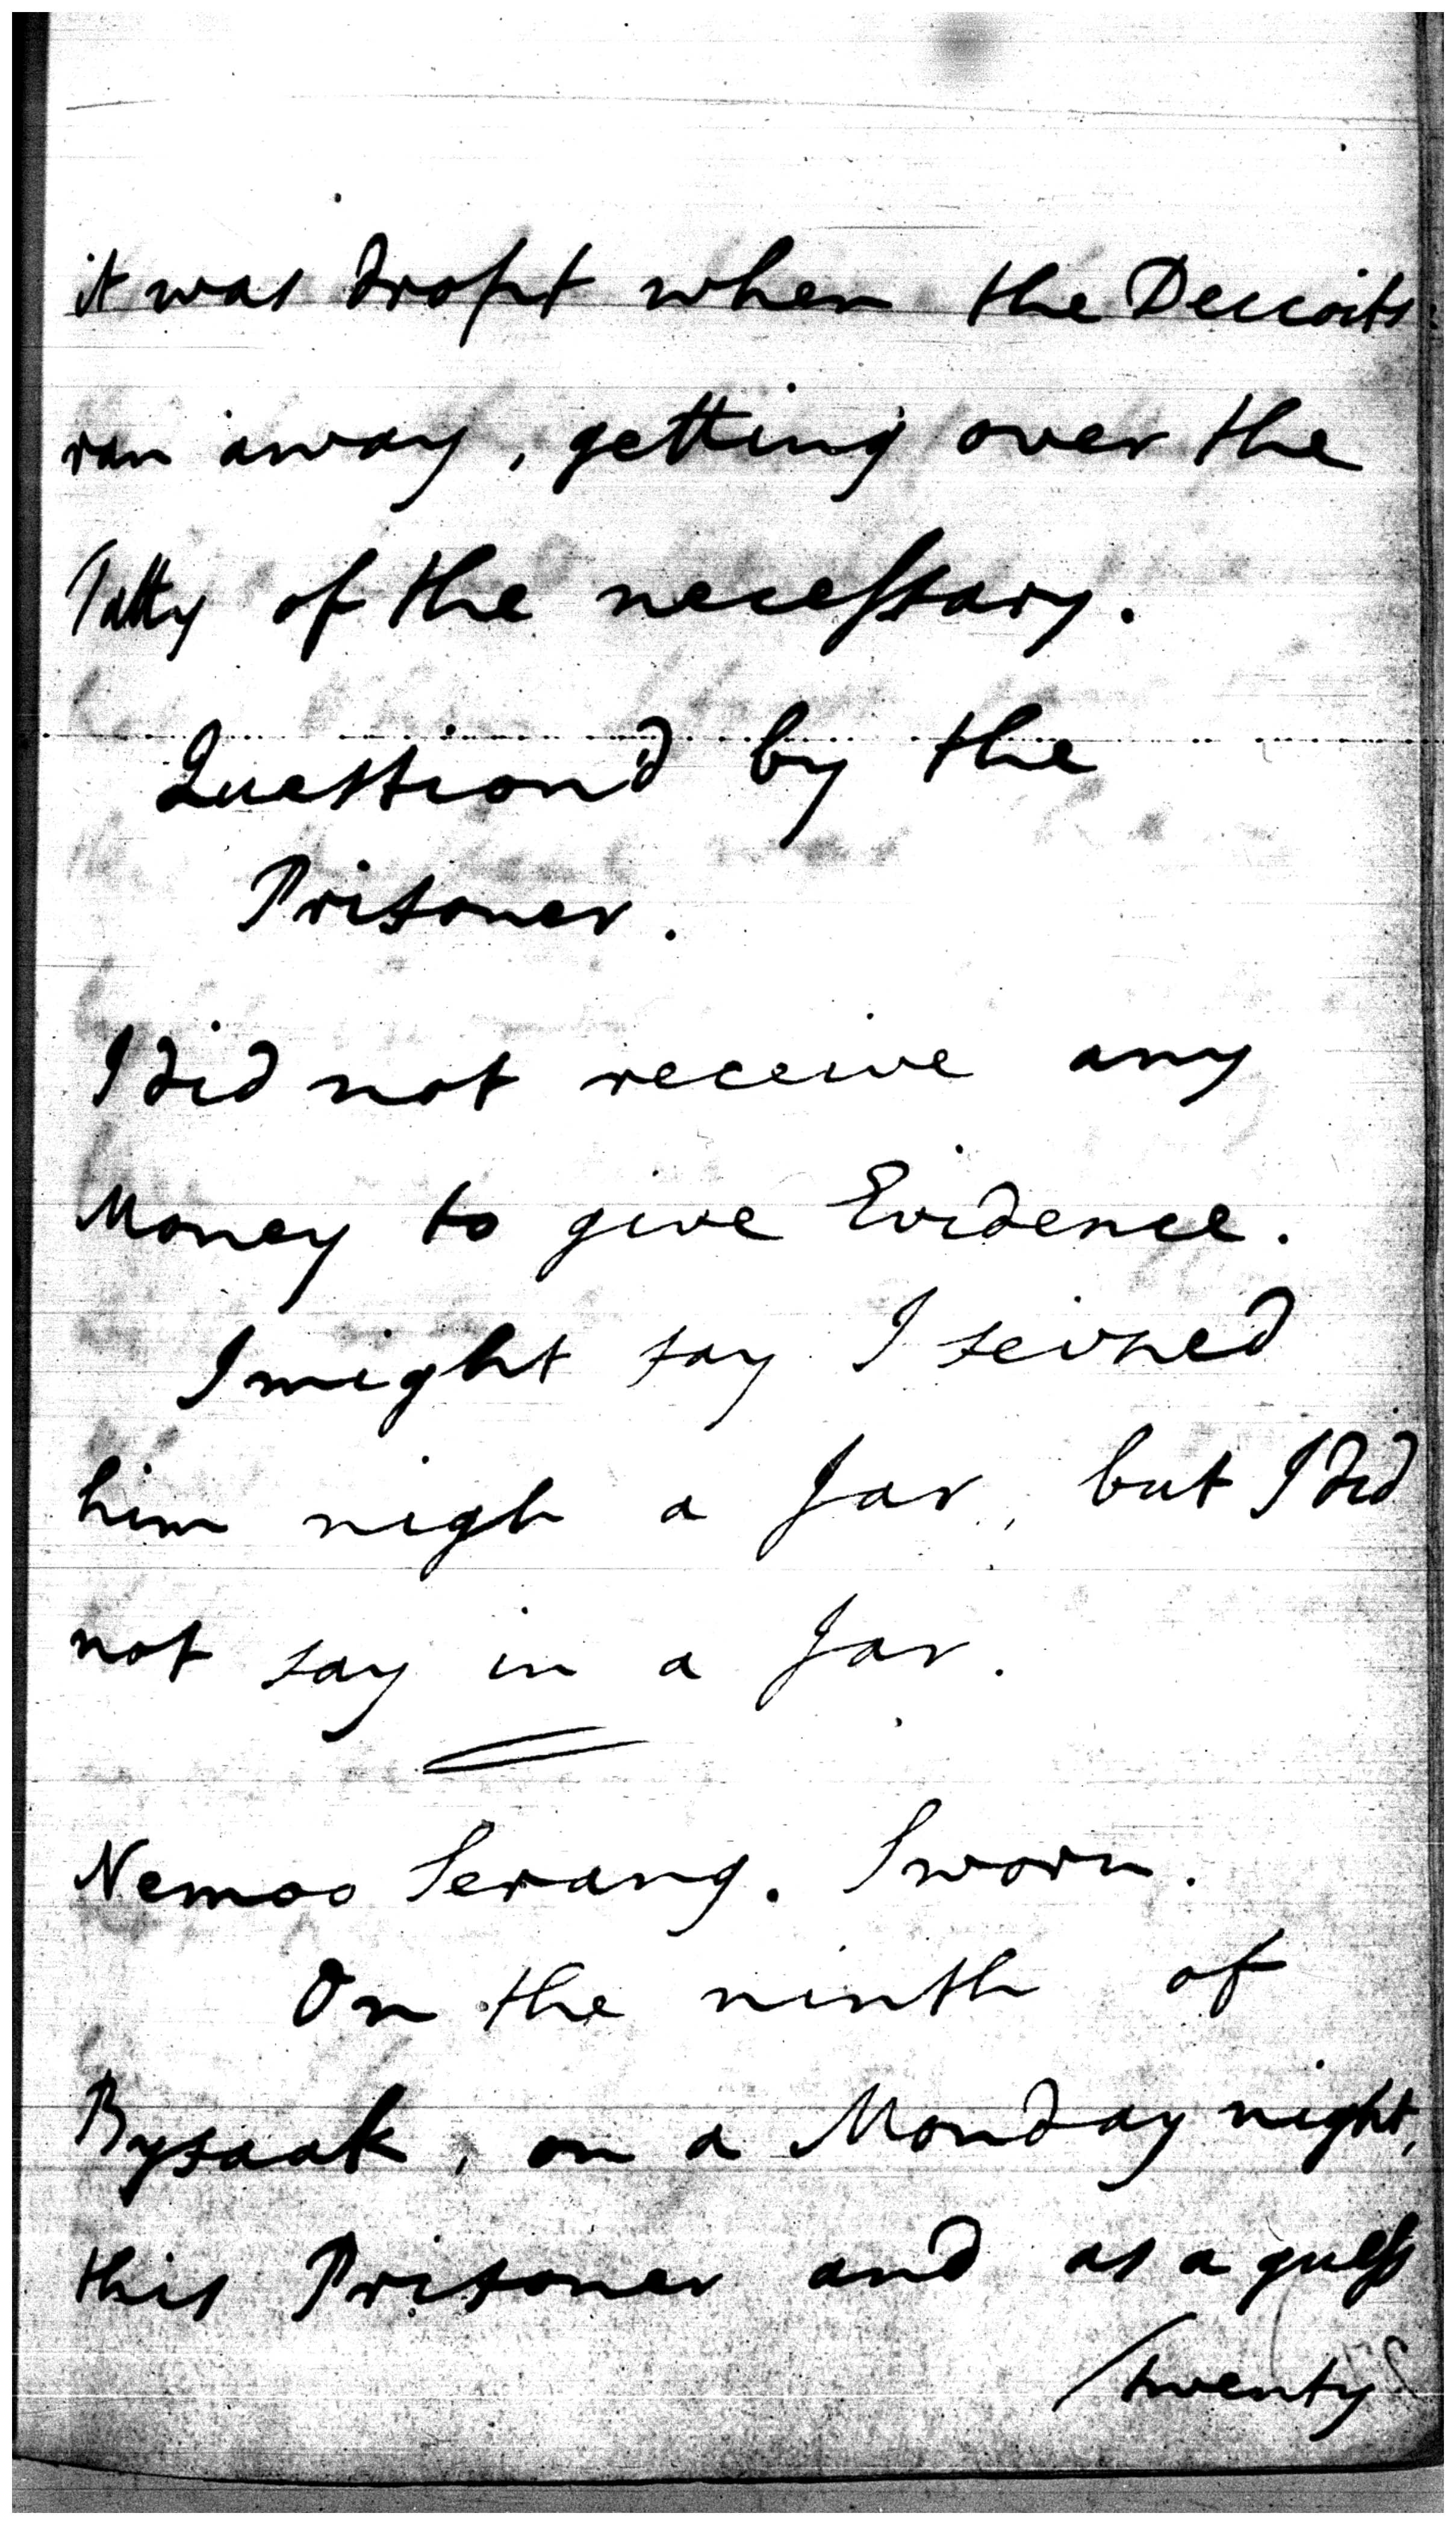 it was dropt when the Deccoits
ran away, getting over the
Tatty of the necessary.
Question'd by the
Prisoner.
I did not receive any
Money to give Evidence.
I might say I seized
him nigh a Jar, but I did
not say in a Jar.
Nemoo Serang. Sworn.
On the ninth of
Bysaak, on a Monday night,
this Prisoner and as a guess
/twenty